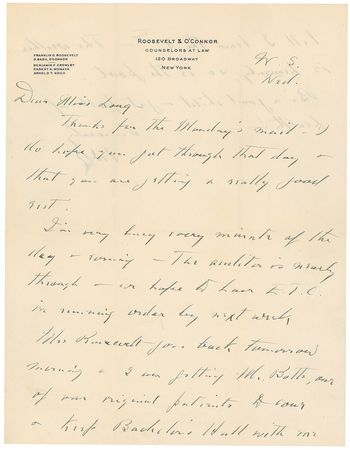 ROOSEVELT & O'CONNOR
COUNSELORS AT LAW
120 BROADWAY
NEW YORK
FRANKLIN D. ROOSEVELT
D. BASIL O'CONNOR
BENJAMIN F. CROWLEY
EARNEST K. WOMACK
ARNOLD T. KOCH
W. S.
Wed.
Dear Miss Long
Thanks for the Monday's mail. I
do hope you got through that day &
that you are getting a really good
rest.
I'm very busy every minute of the
day & evening - The auditor is nearly
through - & hope to have
in running order by next week
Mrs Roosevelt goes back tomorrow
morning & I am getting Mr. Botts, one
of our original patients to come
& keep Bachelor's Hall with me